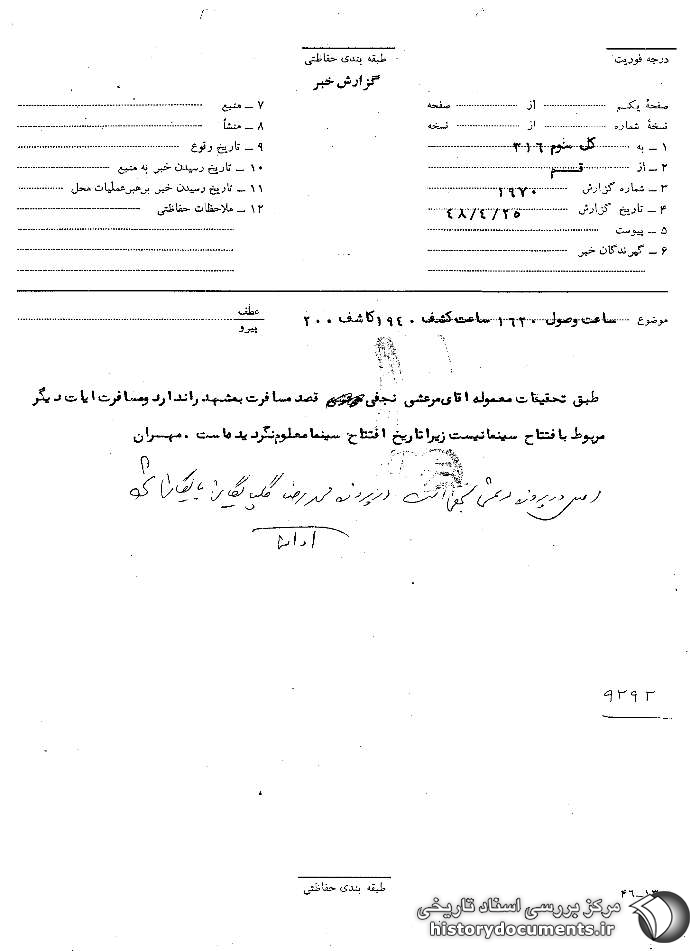 درجه فوریت
طبقه بندی حفاظتی
گزارش خبر
صفحهٔ یکم از صفحه
نسخهٔ شماره از نسخه
۱ ـ به کل سوم ۳۱۶
۲ ـ از قم
۳ ـ شماره گزارش ۱۹۷۰
۴ ـ تاریخ گزارش ۴۸/۴/۲۵
۵ ـ پیوست
۶ ـ گیرندگان خبر
۷ ـ منبع
۸ ـ منشأ
۹ ـ تاریخ وقوع
۱۰ ـ تاریخ رسیدن خبر به منبع
۱۱ ـ تاریخ رسیدن خبر برهبر عملیات محل
۱۲ ـ ملاحظات حفاظتی
موضوع ساعت وصول ۱۶۲۰ ساعت کشف ۱۹۴۰ کاشف ۲۰۰
عطف
پیرو
طبق تحقیقات معموله اقای مرعشی نجفی قصد مسافرت بمشهد راندارد ومسافرت ایات دیگر
مربوط با فتتاح سینما نیست زیرا تاریخ افتتاح سینما معلوم نگردیده است . مهران
اصل در پرونده مرعشی نجفی است در پرونده محمد رضا گلپایگانی بایگانی شود
۹۲۹۲
طبقه بندی حفاظتی
۴۶ـ۱۳
مرکز بررسی اسناد تاریخی
historydocuments.ir